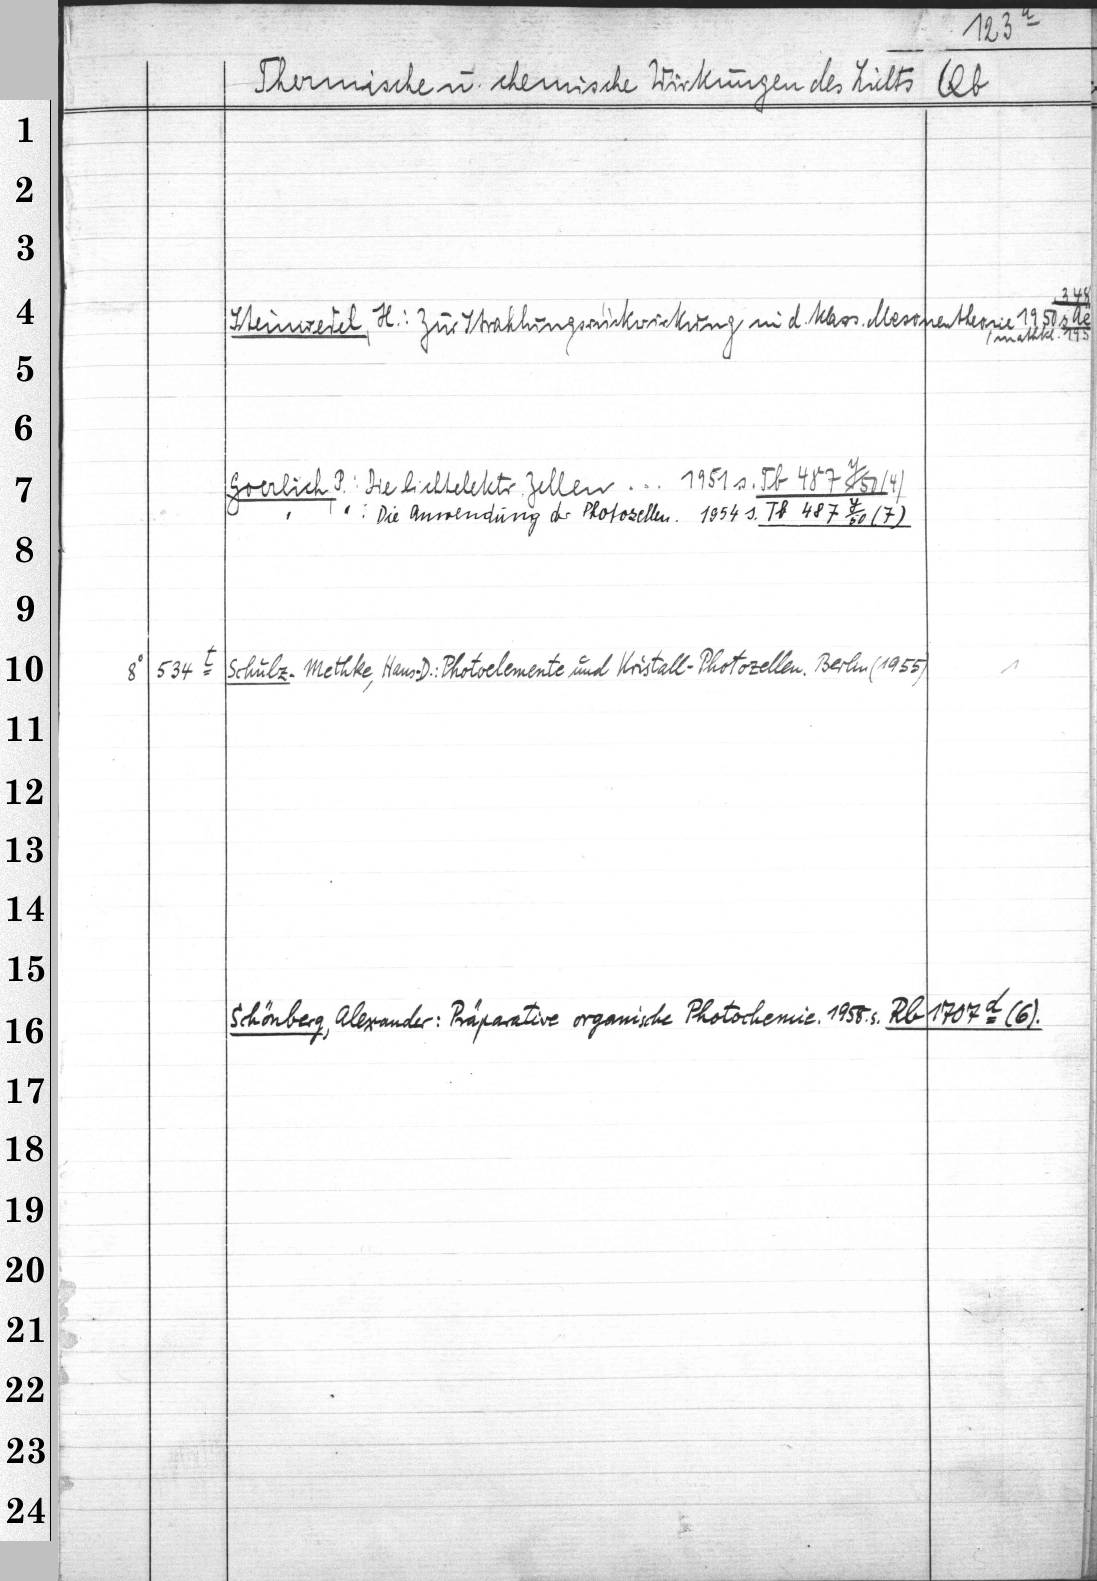 123 a
Thermische u. chemische Wirkungen des Lichts Qb
1
2
3
348
4 Steinwedel, H.: Zur Strahlungsrückwirkung in d. klass. Mesonentheorie 1950 s. Ae
mathkl. 195
5
6
7 Goerlich P.: Die lichtelektr. Zellen ... 1951 s. Tb 487 y/50 (4)
" " : Die Anwendung der Photozellen. 1954 s. Tb 487 y/50 (7)
8
9
10 8° 534 t Schulz-Methke, Hans-D.: Photoelemente und Kristall-Photozellen. Berlin (1955) 1
11
12
13
14
15
16 Schönberg, Alexander: Präparative organische Photochemie. 1958. s. Rb 1707 d (6).
17
18
19
20
21
22
23
24